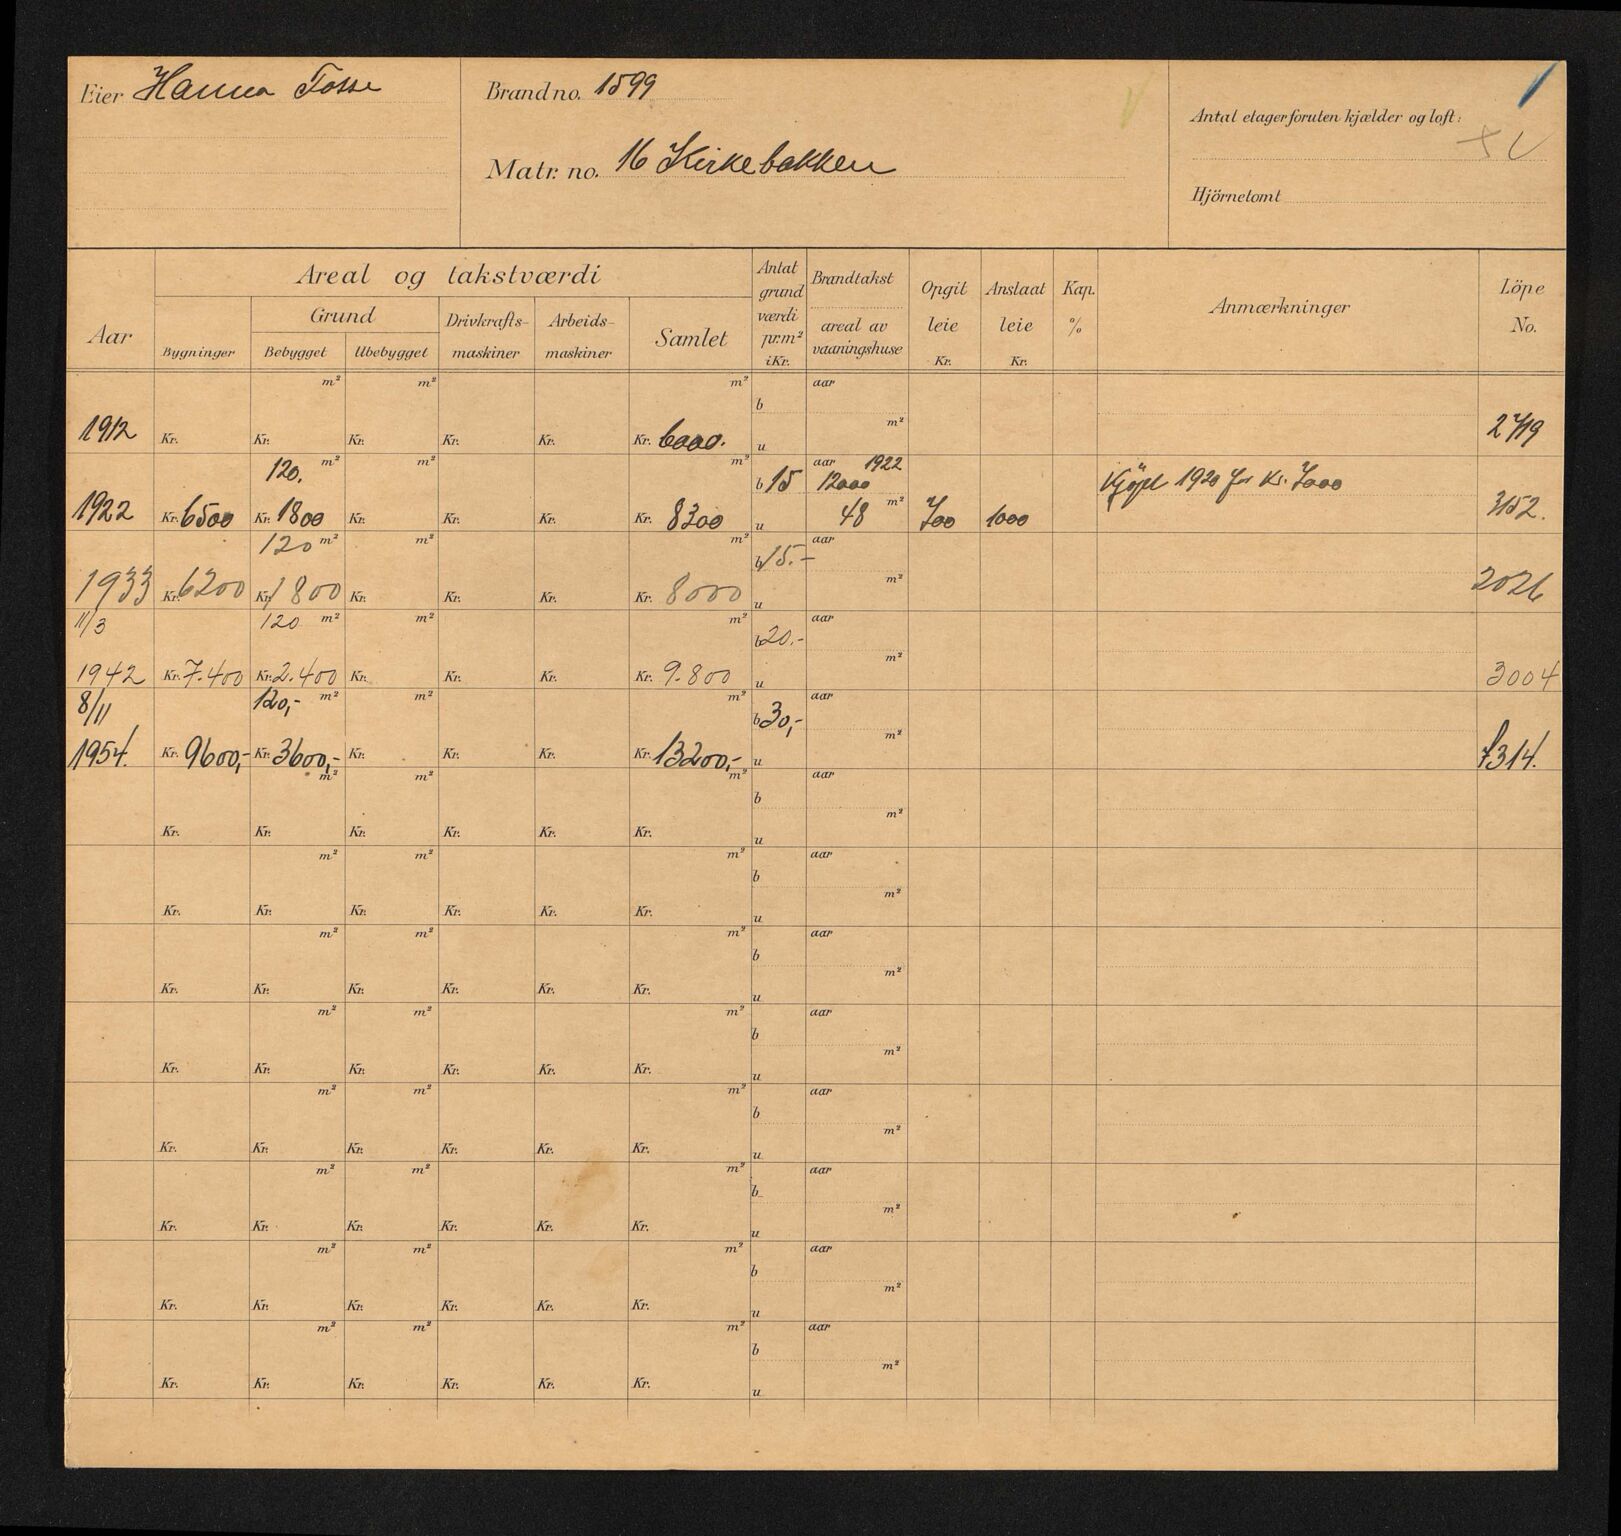 Eier Hanna Fosse
Brand no. 1599
Matr. no. 16 Kirkebakken
Antal etager foruten kjælder og loft:
Hjörnetomt
Aar
Areal og takstværdi
Bygninger
Grund
Bebygget Ubebygget
Drivkrafts-
maskiner
Arbeids-
maskiner
Samlet
Antat
grund
værdi
pr. m²
i Kr.
Brandtakst
areal av
vaaningshuse
Opgit
leie
Kr.
Anslaat
leie
Kr.
Kap.
%
Anmærkninger
Löpe
No.
m² m² m² aar
b
m²
1912 Kr. Kr. Kr. Kr. Kr. Kr. 6000. u 2719
120. m² m² m² aar 1922
b 15 12000 Kjöpt 1920 for Kr. 7000
m²
1922 Kr. 6500 Kr. 1800 Kr. Kr. Kr. Kr. 8300 u 48 700 1000 3152.
120 m² m² m² aar
b 15.-
m²
1933 Kr. 6200 Kr. 1800 Kr. Kr. Kr. Kr. 8000 u 2026
11/3 120 m² m² m² aar
b 20.-
m²
1942 Kr. 7.400 Kr. 2.400 Kr. Kr. Kr. Kr. 9.800 u 3004
8/11 120,- m² m² m² aar
b 30,-
m²
1954. Kr. 9600,- Kr. 3600,- Kr. Kr. Kr. Kr. 13200,- u 7314.
m² m² m² aar
b
m²
Kr. Kr. Kr. Kr. Kr. Kr. u
m² m² m² aar
b
m²
Kr. Kr. Kr. Kr. Kr. Kr. u
m² m² m² aar
b
m²
Kr. Kr. Kr. Kr. Kr. Kr. u
m² m² m² aar
b
m²
Kr. Kr. Kr. Kr. Kr. Kr. u
m² m² m² aar
b
m²
Kr. Kr. Kr. Kr. Kr. Kr. u
m² m² m² aar
b
m²
Kr. Kr. Kr. Kr. Kr. Kr. u
m² m² m² aar
b
m²
Kr. Kr. Kr. Kr. Kr. Kr. u
m² m² m² aar
b
m²
Kr. Kr. Kr. Kr. Kr. Kr. u